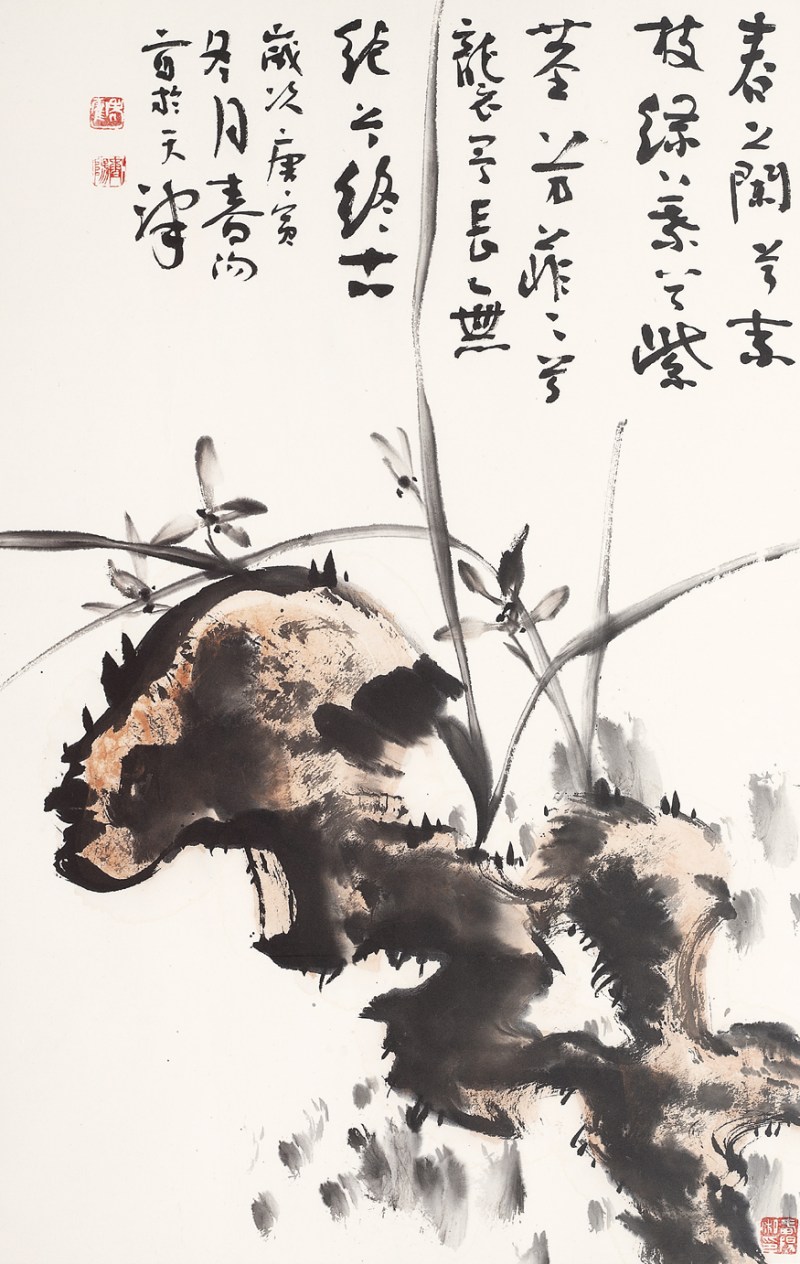 春之蘭兮素
枝綠葉兮紫
莖芳菲々兮
襲予長無
絕兮終古
歲次庚寅
冬月春陽
於天津